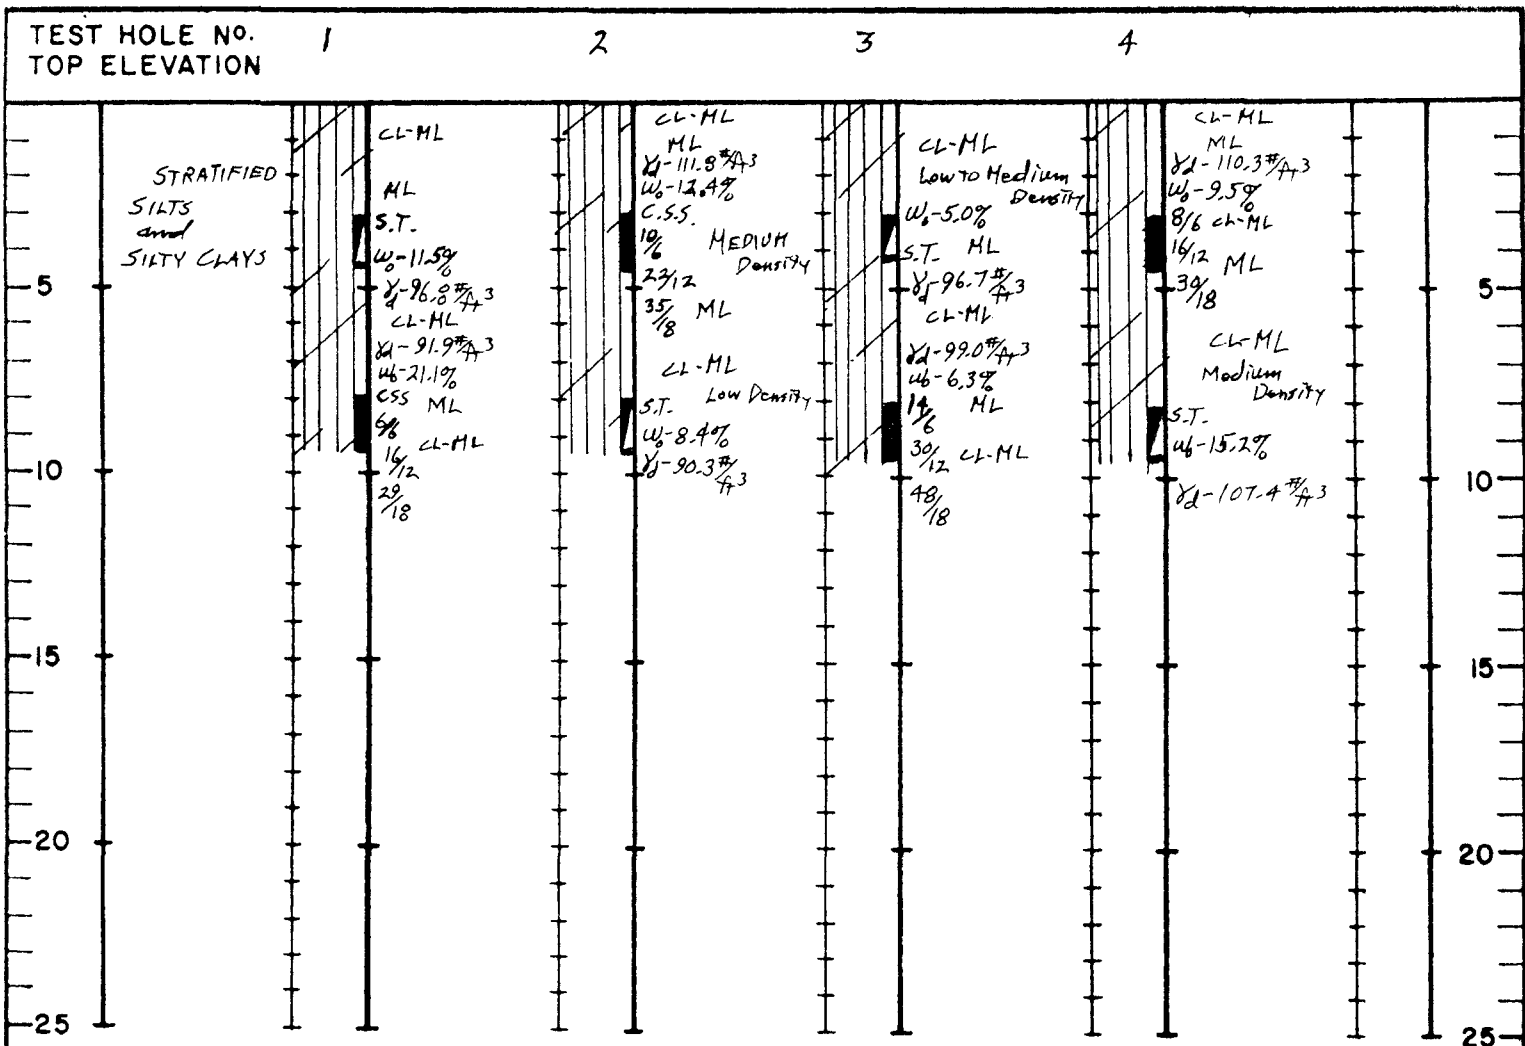 TEST HOLE NO.
TOP ELEVATION
1
2
3
4
STRATIFIED
SILTS
and
SILTY CLAYS
CL-ML
ML
S.T.
w₀-11.5%
γd-96.0#/ft3
CL-ML
γd-91.9#/ft3
w₀-21.1%
CSS
ML
6/6
CL-ML
16/12
29/18
CL-ML
ML
γd-111.8#/ft3
w₀-12.4%
C.S.S.
10/6
MEDIUM
Density
22/12
35/18
ML
CL-ML
Low Density
S.T.
w₀-8.4%
γd-90.3#/ft3
CL-ML
Low to Medium
Density
w₀-5.0%
S.T.
ML
γd-96.7#/ft3
CL-ML
γd-99.0#/ft3
w₀-6.3%
14/6
ML
30/12
CL-ML
48/18
CL-ML
ML
γd-110.3#/ft3
w₀-9.5%
8/6
CL-ML
16/12
ML
30/18
CL-ML
Medium
Density
S.T.
w₀-15.2%
γd-107.4#/ft3
5
10
15
20
25
5
10
15
20
25